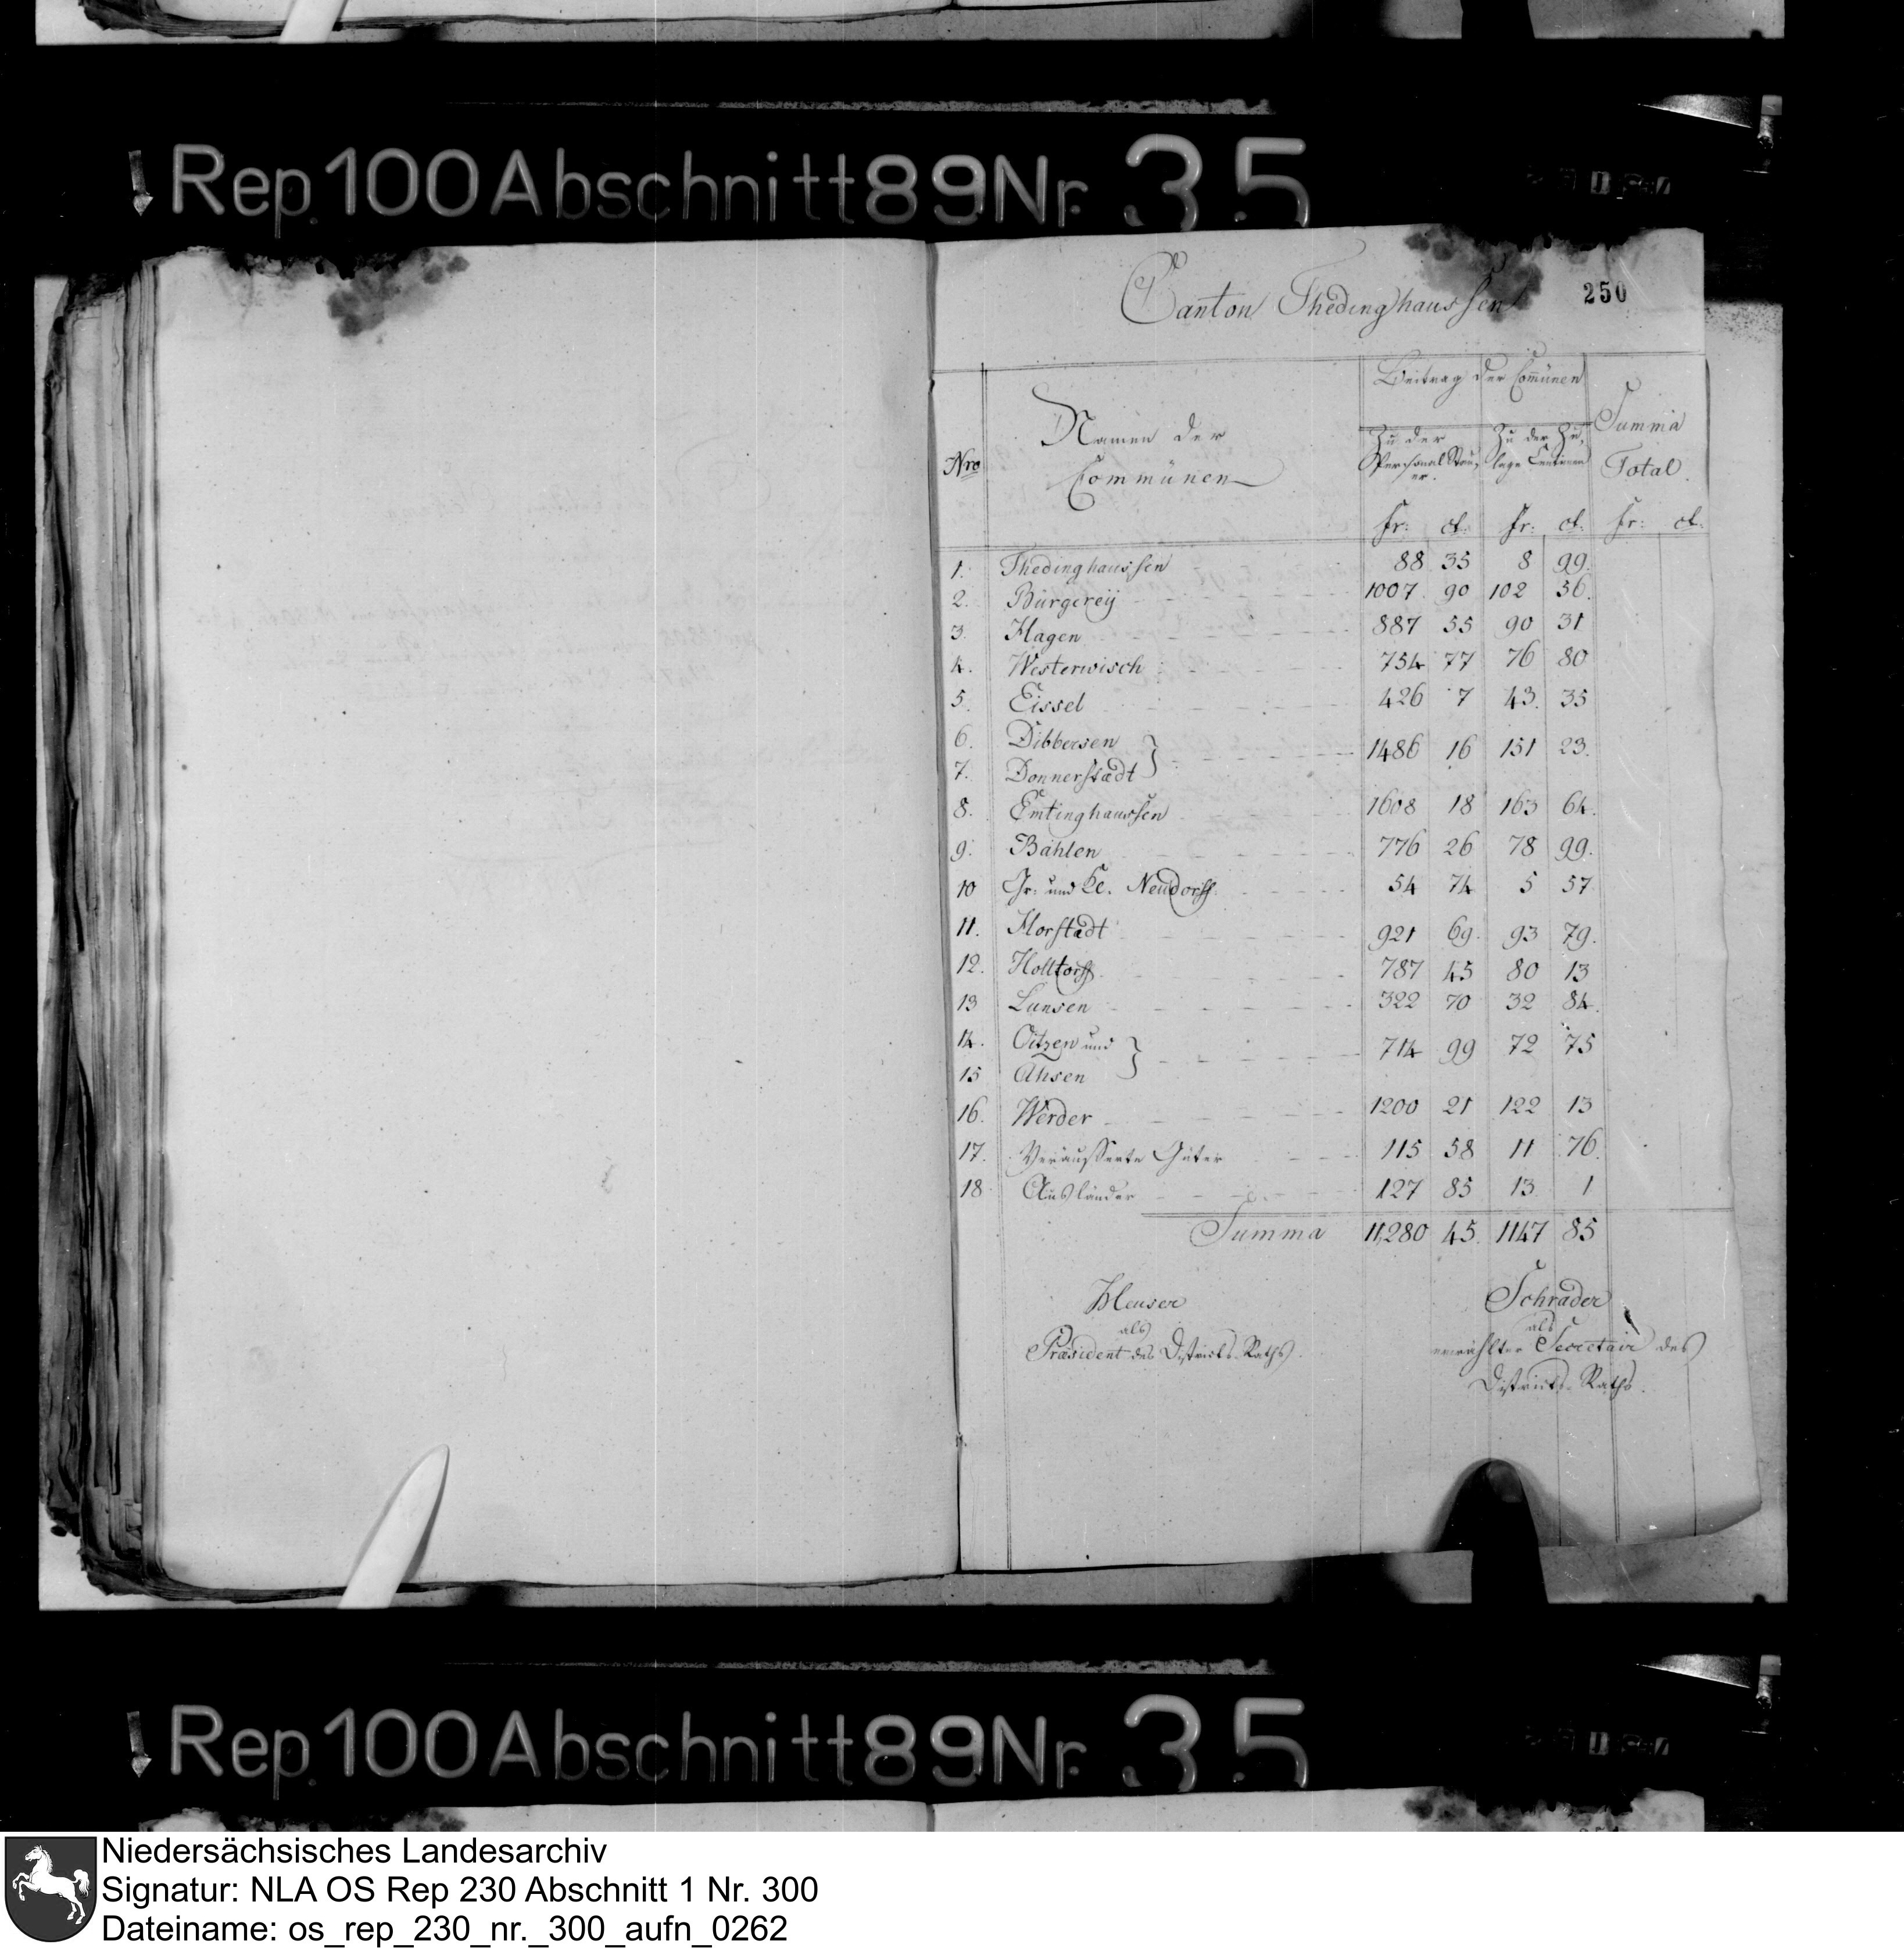 Rep 100 Abschnitt 89 Nr. 35
Canton Thedinghaussen
250
Nro
Namen der Commünen
Beitrag der Commünen
Zu der Personal Steuer.
Zu der Zulage Centimen
Summa Total.
fr: ct. fr: ct. fr: ct.
1. Thedinghaussen 88 35 8 99.
2. Bürgereÿ 1007 90 102 56.
3. Hagen 887 55 90 31
4. Westerwisch 754 77 76 80
5. Eissel 426 7 43. 35
6. Dibbersen
7. Donnerstædt } 1486 16 151 23.
8. Emtinghaussen 1608 18 163 64.
9. Bahlen 776 26 78 99.
10 Gr: und Kl. Neudorff. 54 74 5 57
11. Horstædt 921 69. 93 79.
12. Holltorff 787 45 80 13
13 Lunsen 322 70 32 84.
14. Oitzen und
15 Ahsen } 714 99 72 75
16. Werder 1200 21 122 13
17. Veräusserte Güter 115 58 11 76.
18 Ausländer 127 85 13 1
Summa 11,280 45. 1147 85
Heuser
als
Præsident des Districts-Raths.
Schrader
als
erwählter Secretair des
Districts-Raths.
Rep 100 Abschnitt 89 Nr. 35
Niedersächsisches Landesarchiv
Signatur: NLA OS Rep 230 Abschnitt 1 Nr. 300
Dateiname: os_rep_230_nr._300_aufn_0262